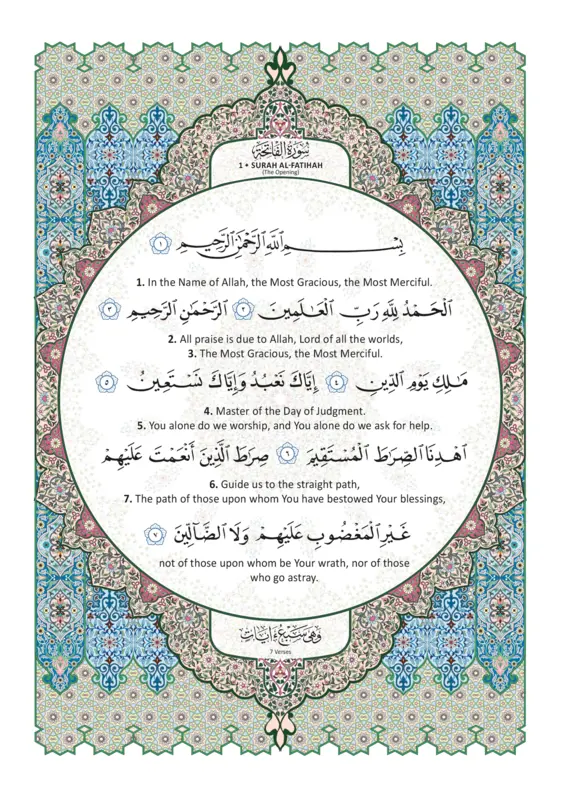 سُورَةُ الفَاتِحَةِ
1 • SURAH AL-FATIHAH
(The Opening)
بِسْمِ اللَّهِ الرَّحْمَٰنِ الرَّحِيمِ ١
1. In the Name of Allah, the Most Gracious, the Most Merciful.
الْحَمْدُ لِلَّهِ رَبِّ الْعَٰلَمِينَ ٢ الرَّحْمَٰنِ الرَّحِيمِ ٣
2. All praise is due to Allah, Lord of all the worlds,
3. The Most Gracious, the Most Merciful.
مَٰلِكِ يَوْمِ الدِّينِ ٤ إِيَّاكَ نَعْبُدُ وَإِيَّاكَ نَسْتَعِينُ ٥
4. Master of the Day of Judgment.
5. You alone do we worship, and You alone do we ask for help.
اهْدِنَا الصِّرَٰطَ الْمُسْتَقِيمَ ٦ صِرَٰطَ الَّذِينَ أَنْعَمْتَ عَلَيْهِمْ
6. Guide us to the straight path,
7. The path of those upon whom You have bestowed Your blessings,
غَيْرِ الْمَغْضُوبِ عَلَيْهِمْ وَلَا الضَّآلِّينَ ٧
not of those upon whom be Your wrath, nor of those
who go astray.
وَهِيَ سَبْعُ ءَايَاتٍ
7 Verses